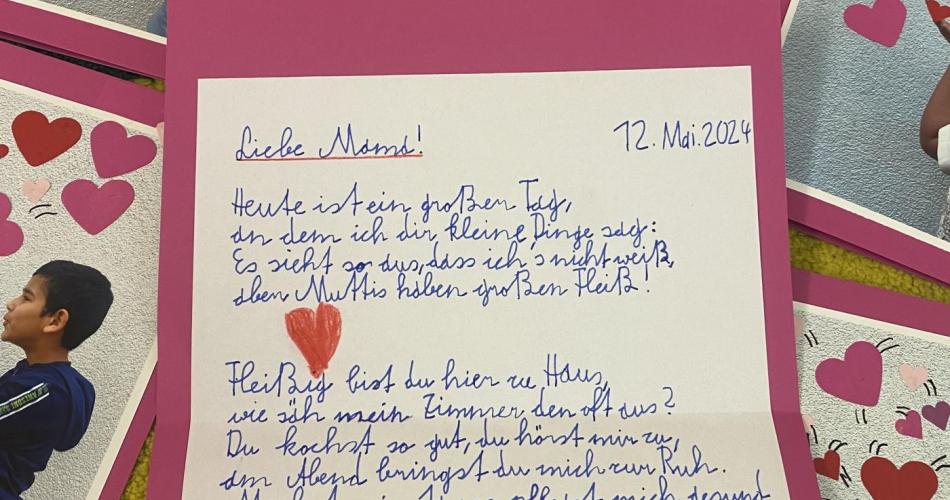 Liebe Mama!
12. Mai. 2024
Heute ist ein großer Tag,
an dem ich dir kleine Dinge sag:
Es sieht so aus, dass ich's nicht weiß,
aber Muttis haben großen Fleiß!
Fleißig bist du hier zu Haus,
wie säh mein Zimmer den oft aus?
Du kochst so gut, du hörst mir zu,
am Abend bringst du mich zur Ruh.
mich gesund